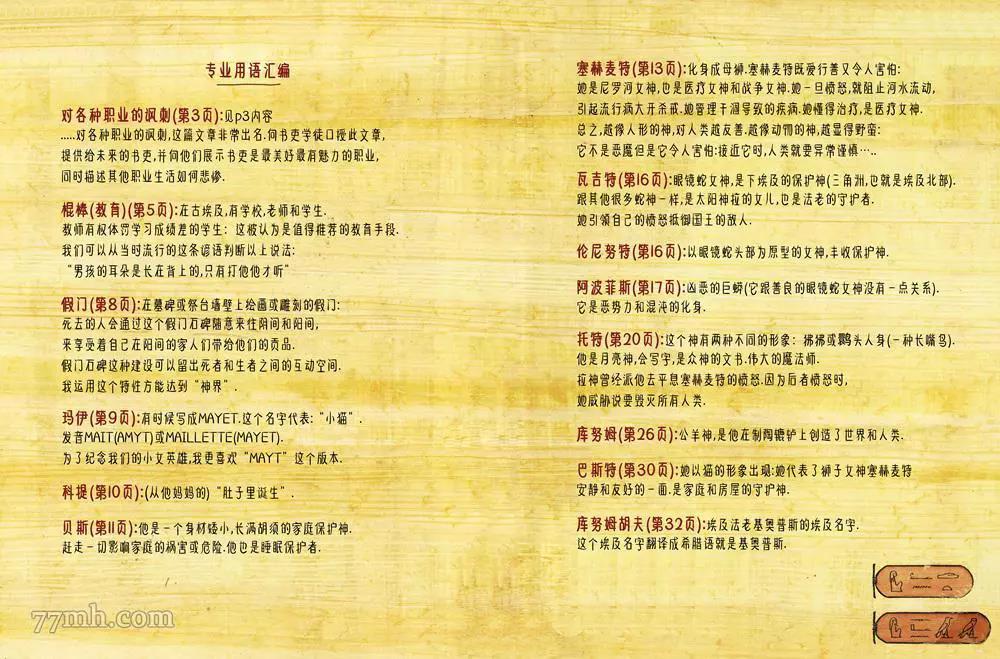 专业用语汇编
对各种职业的讽刺(第3页):见p3内容
.....对各种职业的讽刺,这篇文章非常出名.向书吏学徒口授此文章,
提供给未来的书吏,并向他们展示书吏是最美好最有魅力的职业,
同时描述其他职业生活如何悲惨.
棍棒(教育)(第5页):在古埃及,有学校,老师和学生.
教师有权体罚学习成绩差的学生：这被认为是值得推荐的教育手段.
我们可以从当时流行的这条谚语判断以上说法:
“男孩的耳朵是长在背上的,只有打他他才听”
假门(第8页):在墓碑或祭台墙壁上绘画或雕刻的假门:
死去的人会通过这个假门石碑随意来往阴间和阳间,
来享受着自己在阳间的家人们带给他们的贡品.
假门石碑这种建设可以留出死者和生者之间的互动空间.
我运用这个特性方能达到“神界”.
玛伊(第9页):有时候写成MAYET.这个名字代表:“小猫”.
发音MAIT(AMYT)或MAILLETTE(MAYET).
为了纪念我们的小女英雄,我更喜欢“MAYT”这个版本.
科提(第10页):(从他妈妈的)“肚子里诞生”.
贝斯(第11页):他是一个身材矮小,长满胡须的家庭保护神.
赶走一切影响家庭的祸害或危险.他也是睡眠保护者.
塞赫麦特(第13页):化身成母狮.塞赫麦特既爱行善又令人害怕:
她是尼罗河女神,也是医疗女神和战争女神.她一旦愤怒,就阻止河水流动,
引起流行病大开杀戒.她管理干涸导致的疾病.她懂得治疗,是医疗女神.
总之,越像人形的神,对人类越友善.越像动物的神,越显得野蛮:
它不是恶魔但是它令人害怕:接近它时,人类就要异常谨慎…..
瓦吉特(第16页):眼镜蛇女神,是下埃及的保护神(三角洲,也就是埃及北部).
跟其他很多蛇神一样,是太阳神拉的女儿,也是法老的守护者.
她引领自己的愤怒抵御国王的敌人.
伦尼努特(第16页):以眼镜蛇头部为原型的女神,丰收保护神.
阿波菲斯(第17页):凶恶的巨蟒(它跟善良的眼镜蛇女神没有一点关系).
它是恶势力和混沌的化身.
托特(第20页):这个神有两种不同的形象：狒狒或鹮头人身(一种长嘴鸟).
他是月亮神,会写字,是众神的文书.伟大的魔法师.
拉神曾经派他去平息塞赫麦特的愤怒.因为后者愤怒时,
她威胁说要毁灭所有人类.
库努姆(第26页):公羊神,是他在制陶辘轳上创造了世界和人类.
巴斯特(第30页):她以猫的形象出现:她代表了狮子女神塞赫麦特
安静和友好的一面.是家庭和房屋的守护神.
库努姆胡夫(第32页):埃及法老基奥普斯的埃及名字.
这个埃及名字翻译成希腊语就是基奥普斯.
77mh.com